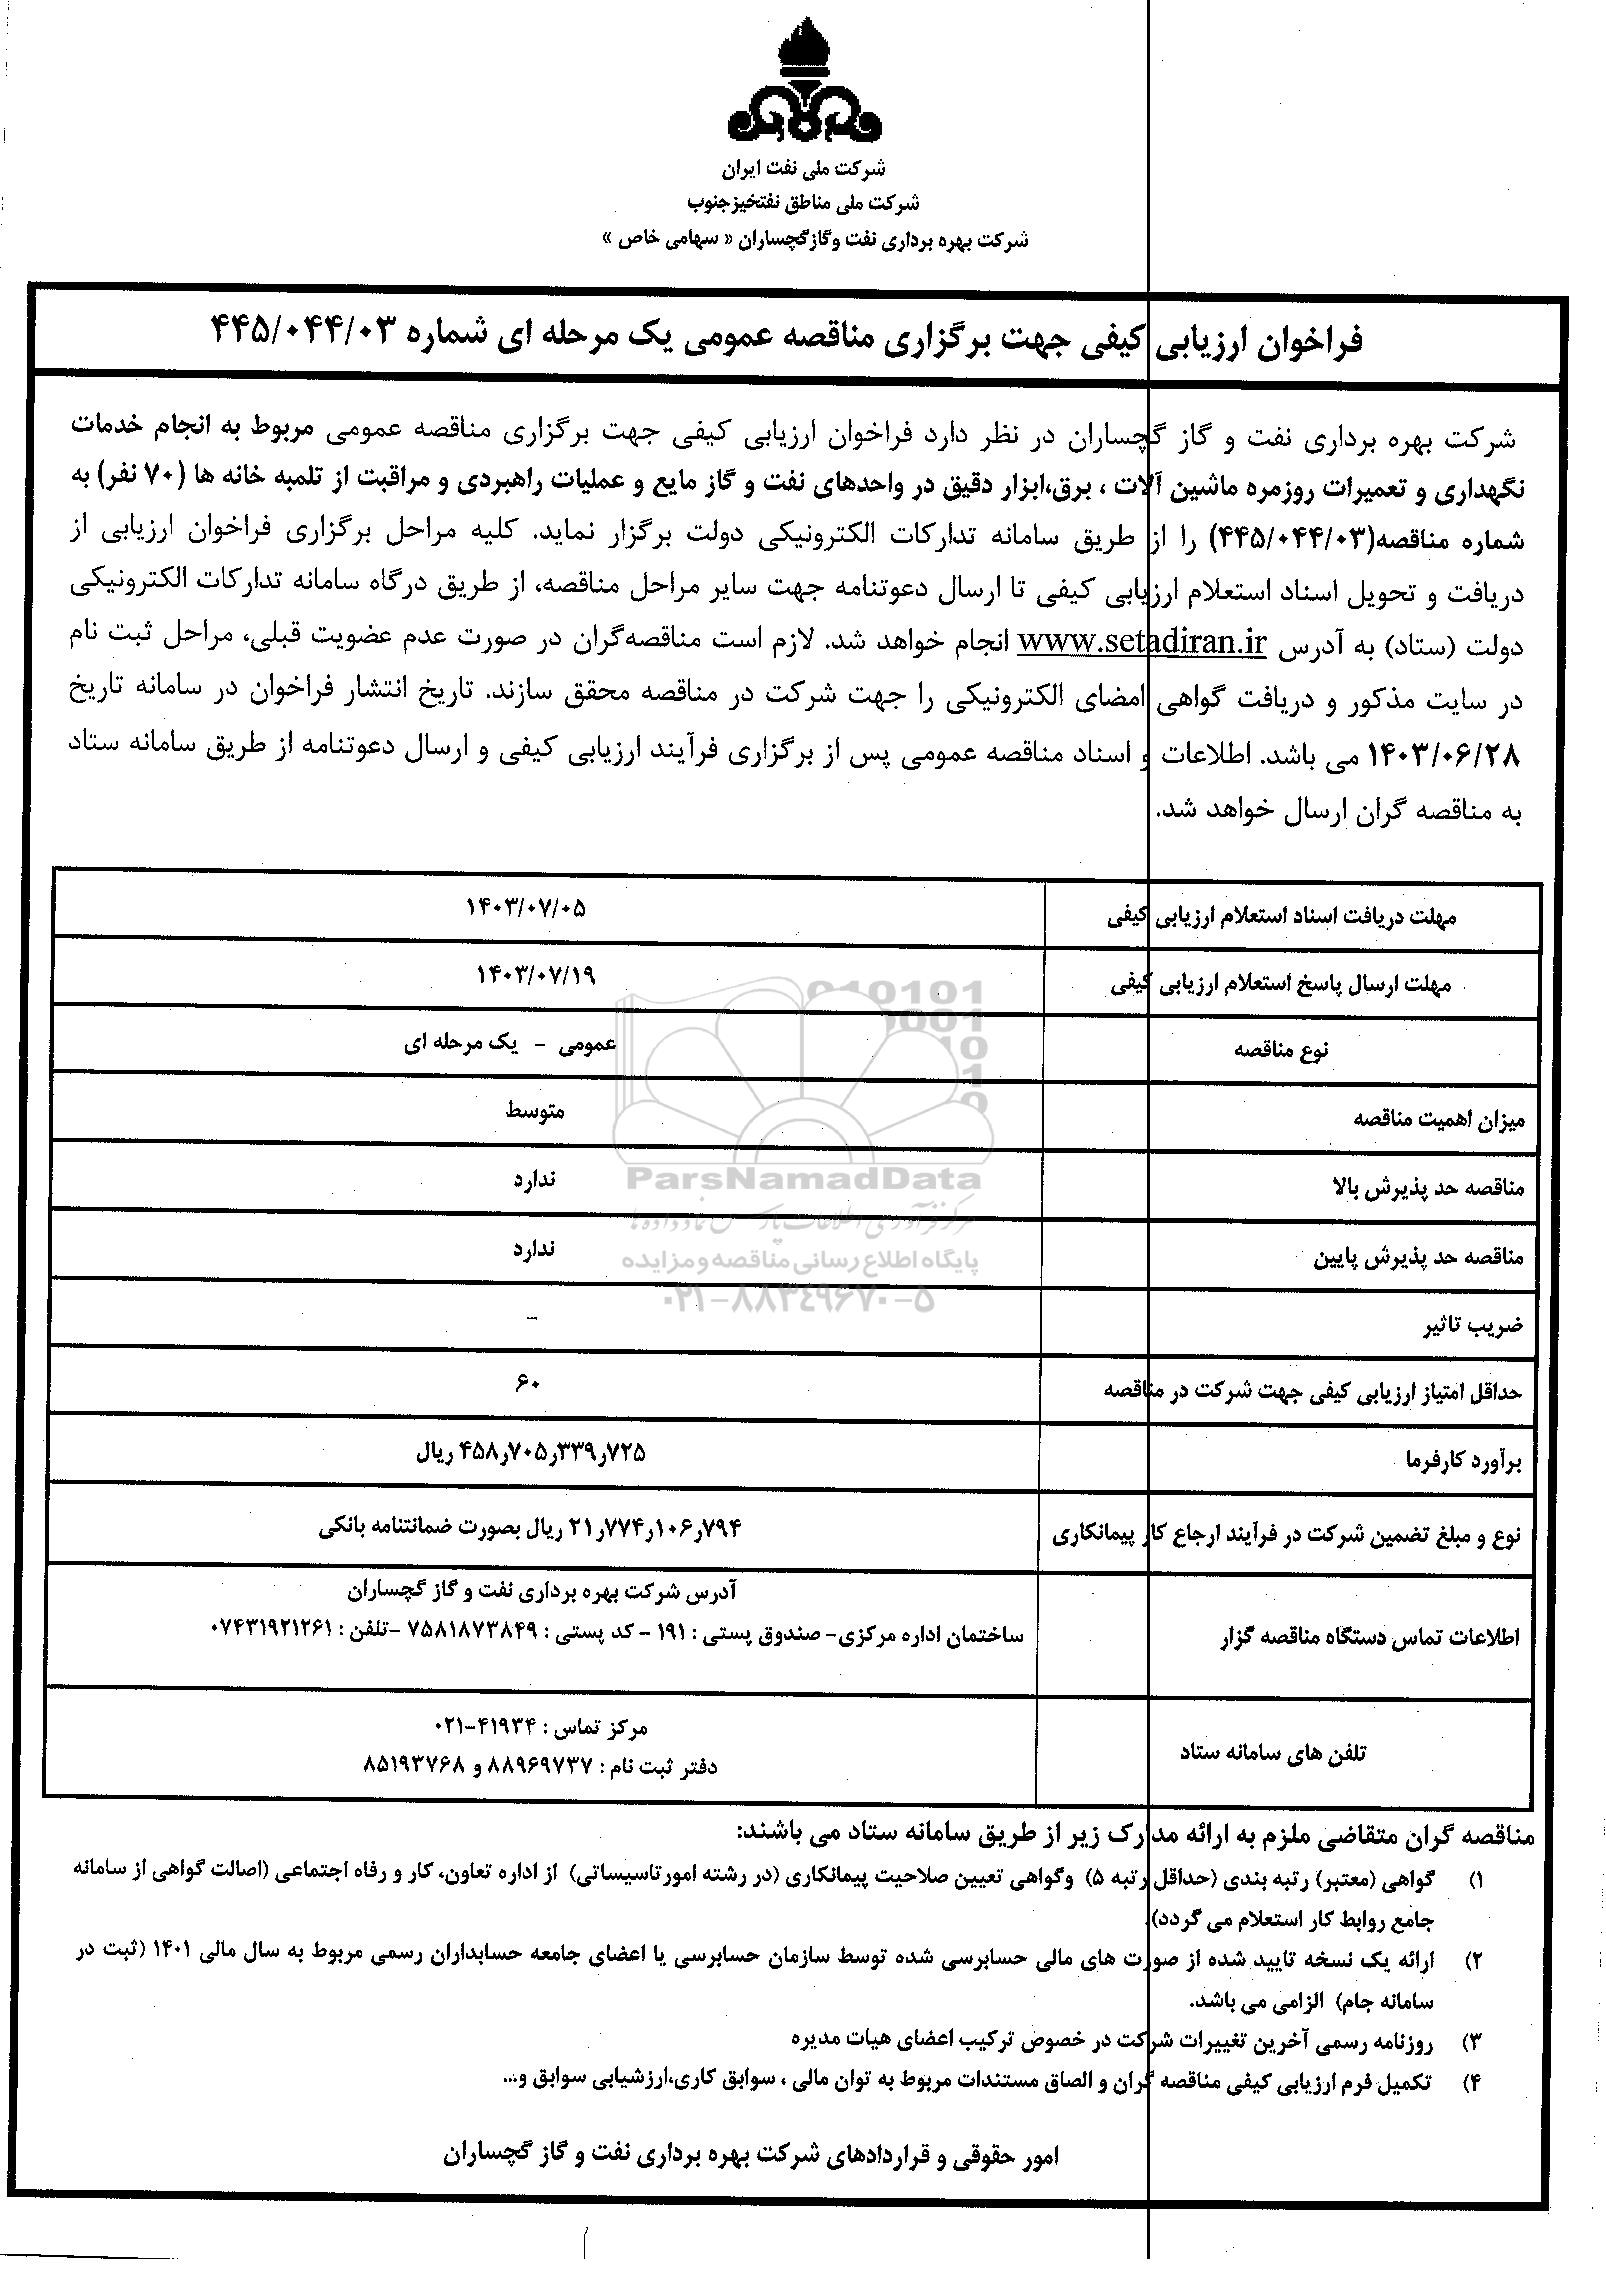 شرکت ملی نفت ایران
شرکت ملی مناطق نفتخیزجنوب
شرکت بهره برداری نفت وگازگچساران « سهامی خاص »
فراخوان ارزیابی کیفی جهت برگزاری مناقصه عمومی یک مرحله ای شماره ۴۴۵/۰۴۴/۰۳
شرکت بهره برداری نفت و گاز گچساران در نظر دارد فراخوان ارزیابی کیفی جهت برگزاری مناقصه عمومی مربوط به انجام خدمات
نگهداری و تعمیرات روزمره ماشین آلات ، برق،ابزار دقیق در واحدهای نفت و گاز مایع و عملیات راهبردی و مراقبت از تلمبه خانه ها (۷۰ نفر) به
شماره مناقصه(۴۴۵/۰۴۴/۰۳) را از طریق سامانه تدارکات الکترونیکی دولت برگزار نماید. کلیه مراحل برگزاری فراخوان ارزیابی از
دریافت و تحویل اسناد استعلام ارزیابی کیفی تا ارسال دعوتنامه جهت سایر مراحل مناقصه، از طریق درگاه سامانه تدارکات الکترونیکی
دولت (ستاد) به آدرس www.setadiran.ir انجام خواهد شد. لازم است مناقصه‌گران در صورت عدم عضویت قبلی، مراحل ثبت نام
در سایت مذکور و دریافت گواهی امضای الکترونیکی را جهت شرکت در مناقصه محقق سازند. تاریخ انتشار فراخوان در سامانه تاریخ
۱۴۰۳/۰۶/۲۸ می باشد. اطلاعات و اسناد مناقصه عمومی پس از برگزاری فرآیند ارزیابی کیفی و ارسال دعوتنامه از طریق سامانه ستاد
به مناقصه گران ارسال خواهد شد.
مهلت دریافت اسناد استعلام ارزیابی کیفی ۱۴۰۳/۰۷/۰۵
مهلت ارسال پاسخ استعلام ارزیابی کیفی ۱۴۰۳/۰۷/۱۹
نوع مناقصه عمومی - یک مرحله ای
میزان اهمیت مناقصه متوسط
مناقصه حد پذیرش بالا ندارد
مناقصه حد پذیرش پایین ندارد
ضریب تاثیر --
حداقل امتیاز ارزیابی کیفی جهت شرکت در مناقصه ۶۰
برآورد کارفرما ۴۵۸٫۷۰۵٫۳۳۹٫۷۲۵ ریال
نوع و مبلغ تضمین شرکت در فرآیند ارجاع کار پیمانکاری ۲۱٫۷۷۴٫۱۰۶٫۷۹۴ ریال بصورت ضمانتنامه بانکی
اطلاعات تماس دستگاه مناقصه گزار
آدرس شرکت بهره برداری نفت و گاز گچساران
ساختمان اداره مرکزی- صندوق پستی : ۱۹۱ - کد پستی : ۷۵۸۱۸۷۳۸۴۹ -تلفن : ۰۷۴۳۱۹۲۱۲۶۱
تلفن های سامانه ستاد
مرکز تماس : ۴۱۹۳۴-۰۲۱
دفتر ثبت نام : ۸۸۹۶۹۷۳۷ و ۸۵۱۹۳۷۶۸
010101
0001
10
ParsNamadData
مرکز فرآوری اطلاعات پارس نماد داده ها
پایگاه اطلاع رسانی مناقصه و مزایده
۰۲۱-۸۸۳۴۹۶۷۰-۵
مناقصه گران متقاضی ملزم به ارائه مدارک زیر از طریق سامانه ستاد می باشند:
۱) گواهی (معتبر) رتبه بندی (حداقل رتبه ۵) وگواهی تعیین صلاحیت پیمانکاری (در رشته امورتاسیساتی) از اداره تعاون، کار و رفاه اجتماعی (اصالت گواهی از سامانه
جامع روابط کار استعلام می گردد)
۲) ارائه یک نسخه تایید شده از صورت های مالی حسابرسی شده توسط سازمان حسابرسی یا اعضای جامعه حسابداران رسمی مربوط به سال مالی ۱۴۰۱ (ثبت در
سامانه جام) الزامی می باشد.
۳) روزنامه رسمی آخرین تغییرات شرکت در خصوص ترکیب اعضای هیات مدیره
۴) تکمیل فرم ارزیابی کیفی مناقصه گران و الصاق مستندات مربوط به توان مالی ، سوابق کاری،ارزشیابی سوابق و...
امور حقوقی و قراردادهای شرکت بهره برداری نفت و گاز گچساران